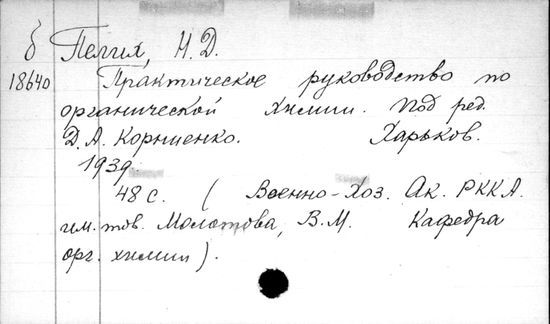 б Пелих, Н. Д.
18640 Практическое руководство по
органической химии. Под ред.
Д. А. Корниенко. Харьков.
1939.
48 с. (Военно-Хоз. Ак. РККА.
им. тов. Молотова, В. М. Кафедра
орг. химии).